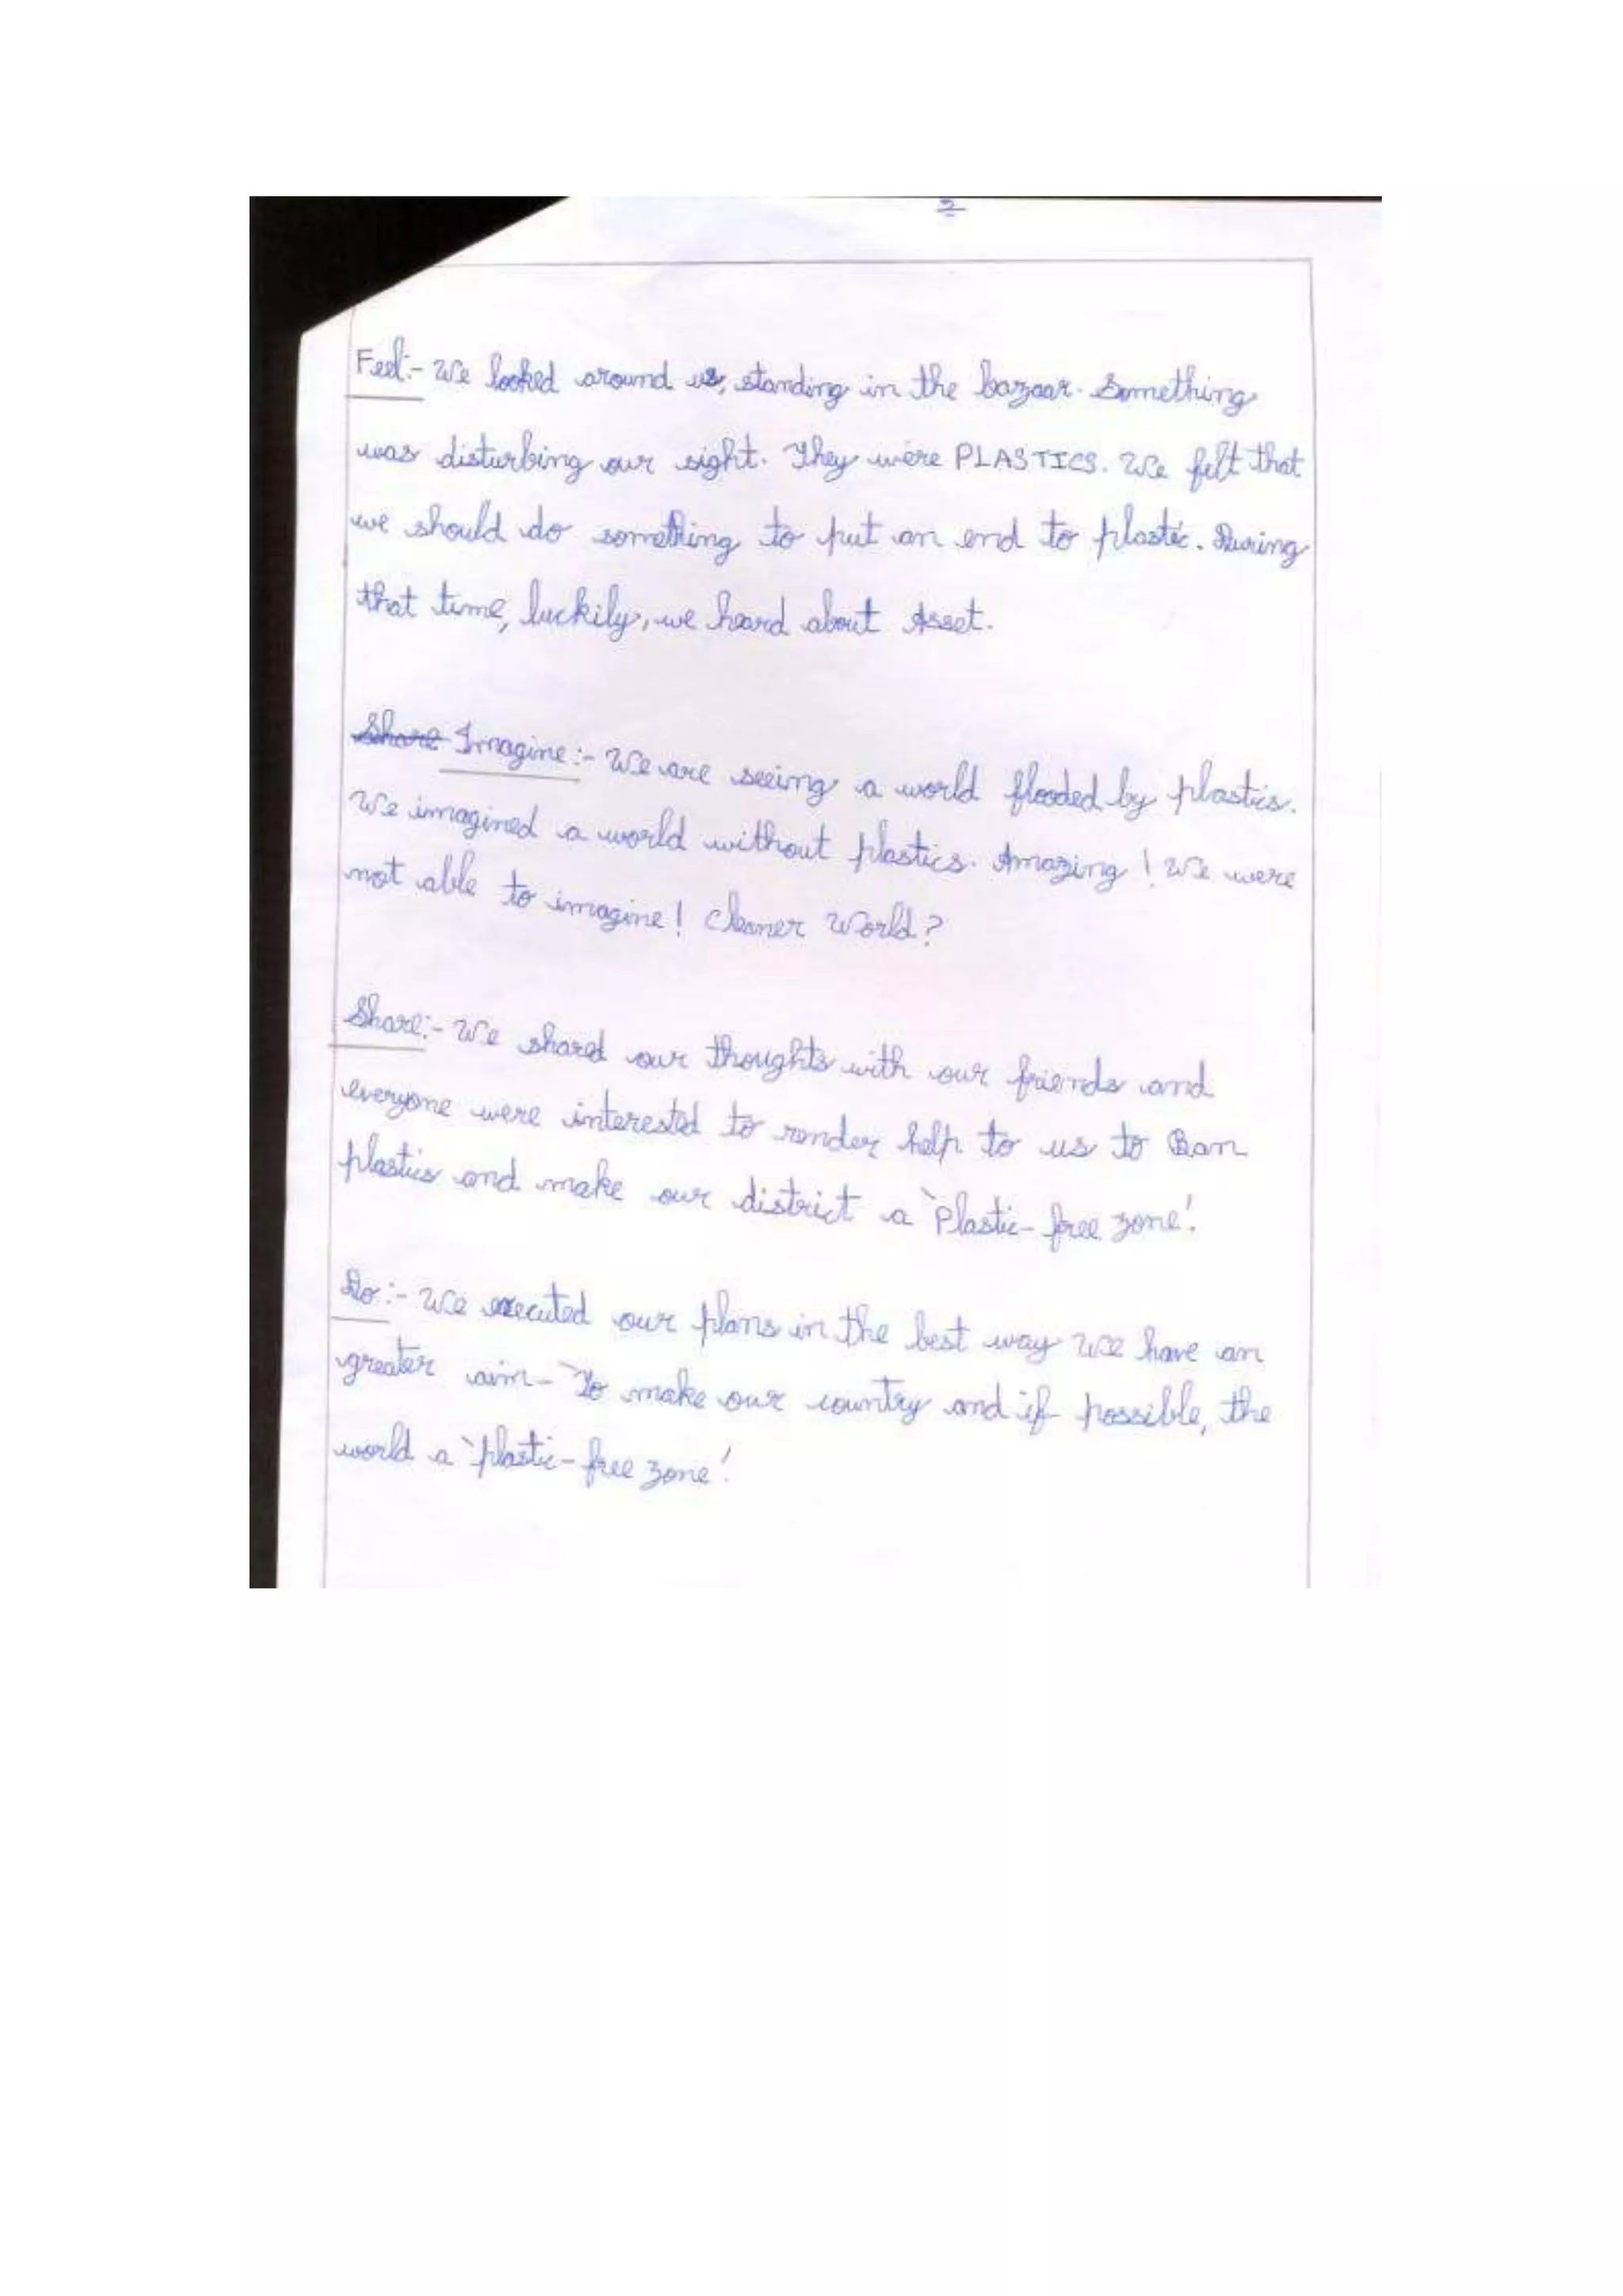 2
Feel:- We looked around us, standing in the bazaar. Something
was disturbing our sight. They were PLASTICS. We felt that
we should do something to put an end to plastic. During
that time, luckily, we heard about Asset.
Share Imagine:- We are seeing a world flooded by plastics.
We imagined a world without plastics. Amazing! We were
not able to imagine! Cleaner World?
Share:- We shared our thoughts with our friends and
everyone were interested to render help to us to Ban
plastics and make our district a 'Plastic-free zone'.
Do:- We executed our plans in the best way We have an
greater aim- 'To make our country and if possible, the
world a 'plastic-free zone'.